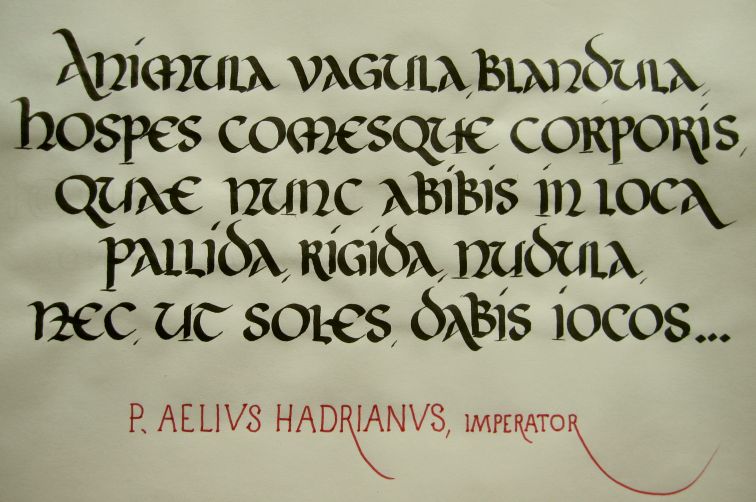 Animula vagula, blandula,
hospes comesque corporis,
quae nunc abibis in loca
pallida, rigida, nudula,
nec, ut soles, dabis iocos...
P. AELIVS HADRIANVS, IMPERATOR